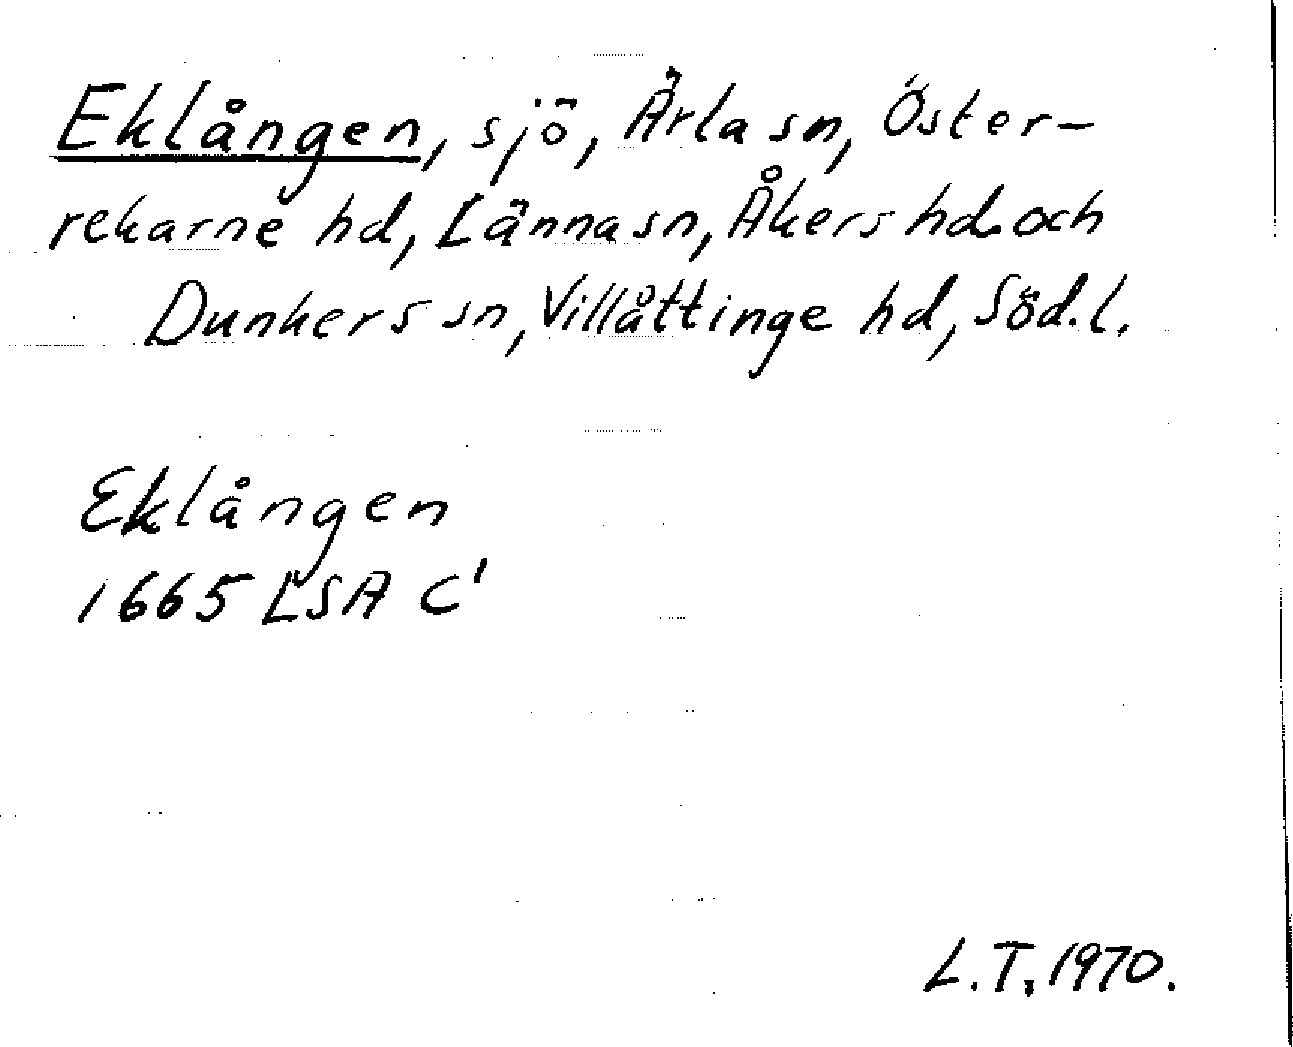 Eklången, sjö, Ärla sn, Öster-
rekarne hd, Länna sn, Åkers hd. och
Dunkers sn, Villåttinge hd, Söd. l.
Eklången
1665 LSA C'
L. T. 1970.